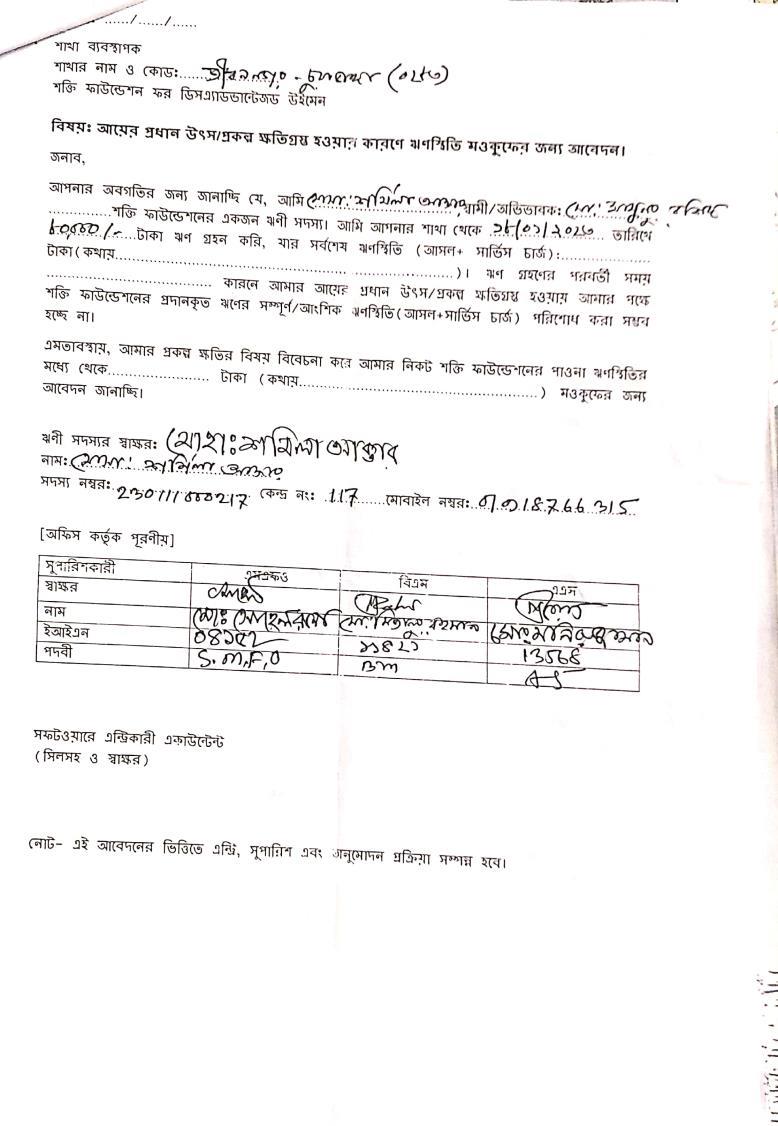 ....../....../......
শাখা ব্যবস্থাপক
শাখার নাম ও কোড:......
শক্তি ফাউন্ডেশন ফর ডিসএ্যাডভান্টেজড উইমেন
বিষয়: আয়ের প্রধান উৎস/প্রকল্প ক্ষতিগ্রস্ত হওয়ার কারণে ঋণস্থিতি মওকুফের জন্য আবেদন।
জনাব,
আপনার অবগতির জন্য জানাচ্ছি যে, আমি মোছা: শর্মিলা আক্তার স্বামী/অভিভাবক: মো:
..............শক্তি ফাউন্ডেশনের একজন ঋণী সদস্য। আমি আপনার শাখা থেকে তারিখে
৮০,০০০/-.....টাকা ঋণ গ্রহন করি, যার সর্বশেষ ঋণস্থিতি (আসল+ সার্ভিস চার্জ):..................
টাকা(কথায়.................................................... ......................)। ঋণ গ্রহণের পরবর্তী সময়
............................... কারনে আমার আয়ের প্রধান উৎস/প্রকল্প ক্ষতিগ্রস্ত হওয়ায় আমার পক্ষে
শক্তি ফাউন্ডেশনের প্রদানকৃত ঋণের সম্পূর্ণ/আংশিক ঋণস্থিতি(আসল+সার্ভিস চার্জ) পরিশোধ করা সম্ভব
হচ্ছে না।
এমতাবস্থায়, আমার প্রকল্প ক্ষতির বিষয় বিবেচনা করে আমার নিকট শক্তি ফাউন্ডেশনের পাওনা ঋণস্থিতির
মধ্যে থেকে....................... টাকা (কথায়.......... ..................................) মওকুফের জন্য
আবেদন জানাচ্ছি।
ঋণী সদস্যর স্বাক্ষর: মোছা: শর্মিলা আক্তার
নাম: মোছা: শর্মিলা আক্তার
সদস্য নম্বর: 230111000217 কেন্দ্র নং: 117 ......মোবাইল নম্বর: 01918766315
[অফিস কর্তৃক পূরণীয়]
সুপারিশকারী এসএফও বিএম এএস
স্বাক্ষর
নাম
ইআইএন 13568
পদবী S.M.F.O BM AS
সফটওয়ারে এন্ট্রিকারী একাউন্টেন্ট
(সিলসহ ও স্বাক্ষর)
নোট- এই আবেদনের ভিত্তিতে এন্ট্রি, সুপারিশ এবং অনুমোদন প্রক্রিয়া সম্পন্ন হবে।